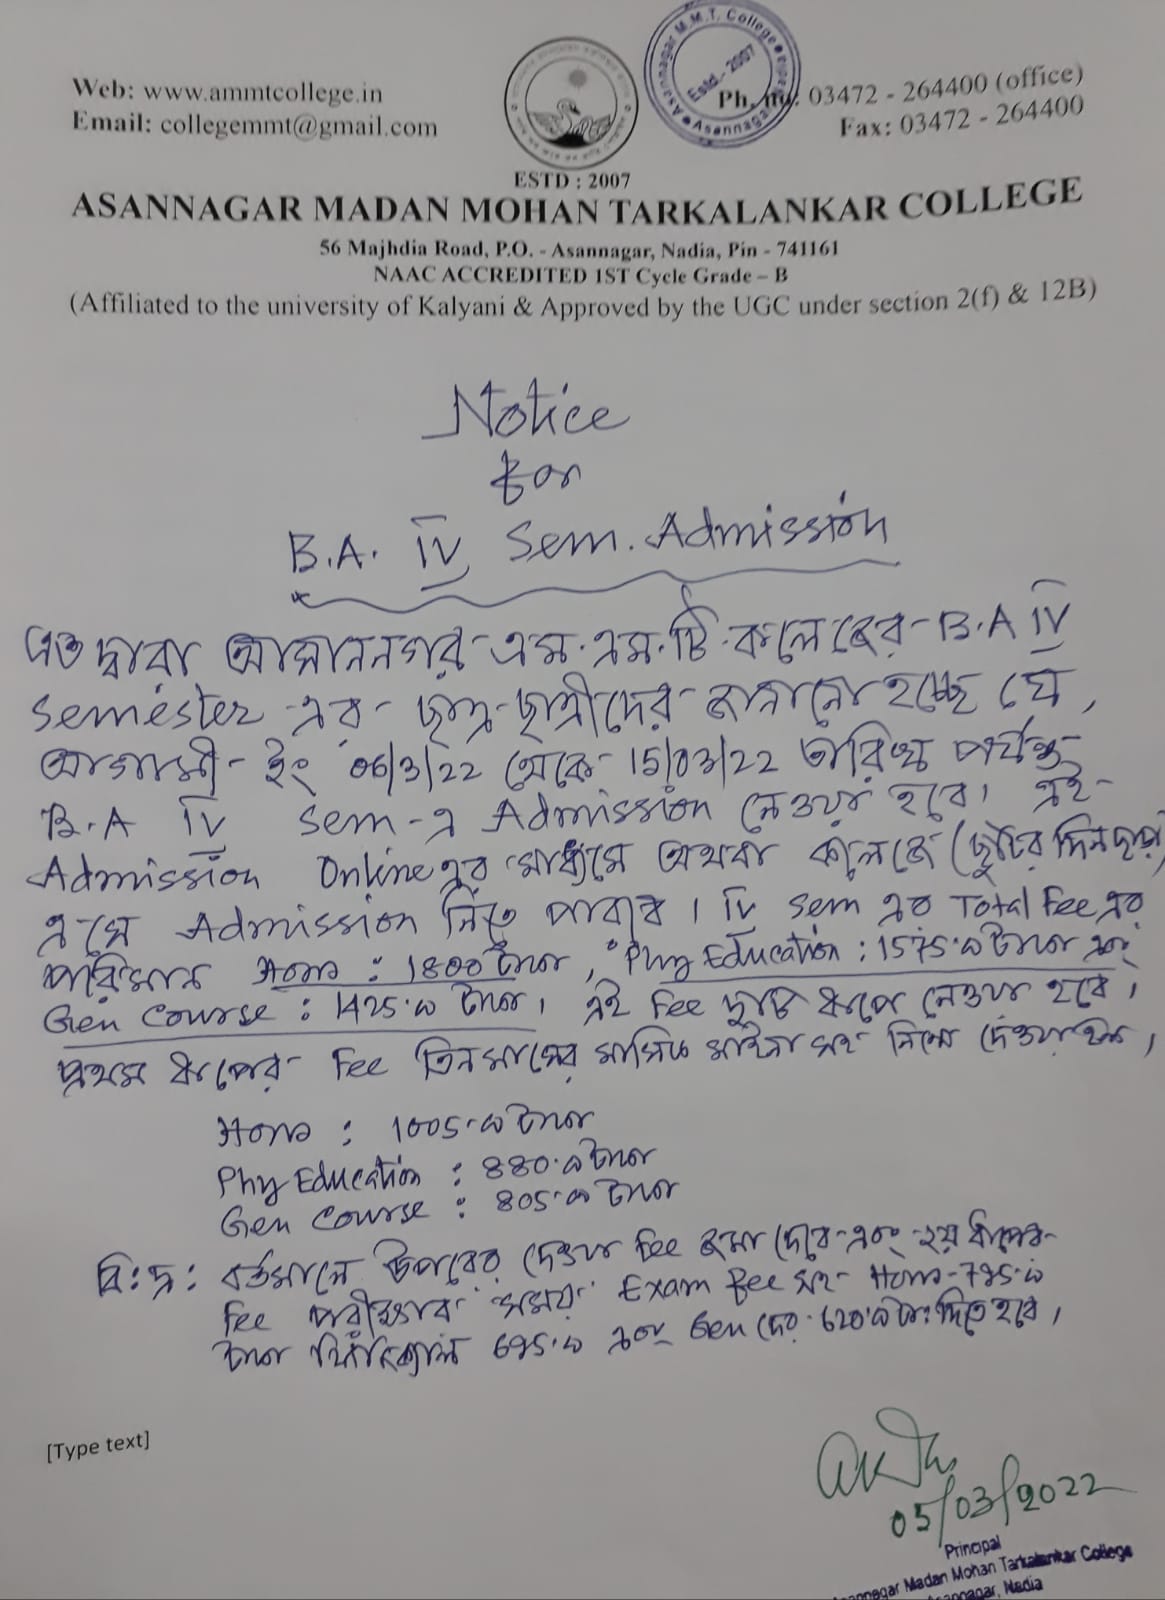 Web: www.ammtcollege.in
Email: collegemmt@gmail.com
Asannagar M.M.T. College
Estd.- 2007
Ph. no: 03472 - 264400 (office)
Fax: 03472 - 264400
ESTD : 2007
ASANNAGAR MADAN MOHAN TARKALANKAR COLLEGE
56 Majhdia Road, P.O. - Asannagar, Nadia, Pin - 741161
NAAC ACCREDITED 1ST Cycle Grade – B
(Affiliated to the university of Kalyani & Approved by the UGC under section 2(f) & 12B)
Notice
for
B.A. IV Sem. Admission
এত দ্বারা আসাননগর এম.এম.টি কলেজের B.A IV
Semester এর ছাত্র-ছাত্রীদের জানানো হচ্ছে যে,
আগামী ইং 06/3/22 থেকে 15/03/22 তারিখ পর্যন্ত
B.A IV Sem-এ Admission নেওয়া হবে। এই
Admission Online এর মাধ্যমে অথবা কলেজে (ছুটির দিন ছাড়া)
এসে Admission নিতে পারবে। IV Sem এর Total Fee এর
পরিমান Hons : 1800 টাকা, Phy Education : 1575.00 টাকা এবং
Gen Course : 1425.00 টাকা। এই Fee দুটি ধাপে নেওয়া হবে।
প্রথম ধাপের Fee তিনমাসের মাসিক মাইনা সহ নিম্নে দেওয়া হল,
Hons : 1005.00 টাকা
Phy Education : 880.00 টাকা
Gen Course : 805.00 টাকা
বি:দ্র: বর্তমানে উপরের দেওয়া Fee জমা দেবে এবং ২য় ধাপের
Fee পরীক্ষার সময় Exam Fee সহ Hons-795.00
টাকা ফিজিক্যাল 695.00 এবং Gen দের 620.00 টাঃ দিতে হবে,
[Type text]
05/03/2022
Principal
Asannagar Madan Mohan Tarkalankar College
Asannagar, Nadia